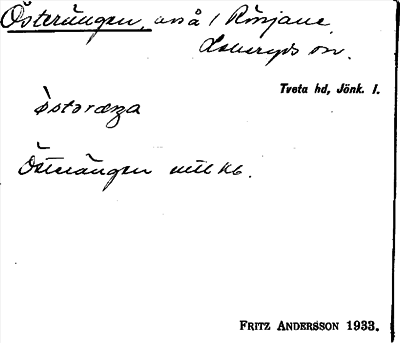 Österängen, avs å 1 Rosjane
Lekeryds sn.
Tveta hd, Jönk. l.
òstəræŋa
Österängen utt kb.
FRITZ ANDERSSON 1933.